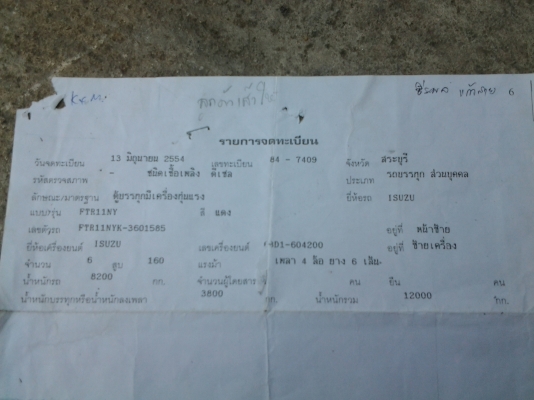 K.K.M.
6
รายการจดทะเบียน
วันจดทะเบียน 13 มิถุนายน 2554 เลขทะเบียน 84 - 7409 จังหวัด สระบุรี
รหัสตรวจสภาพ - ชนิดเชื้อเพลิง ดีเซล ประเภท รถบรรทุก ส่วนบุคคล
ลักษณะ/มาตรฐาน ตู้บรรทุกมีเครื่องทุ่นแรง ยี่ห้อรถ ISUZU
แบบ/รุ่น FTR11NY สี แดง
เลขตัวรถ FTR11NYK-3601585 อยู่ที่ หน้าซ้าย
ยี่ห้อเครื่องยนต์ ISUZU เลขเครื่องยนต์ 6AD1-604200 อยู่ที่ ซ้ายเครื่อง
จำนวน 6 สูบ 160 แรงม้า เพลา 4 ล้อ ยาง 6 เส้น
น้ำหนักรถ 8200 กก. จำนวนผู้โดยสาร คน ยืน คน
น้ำหนักบรรทุกหรือน้ำหนักลงเพลา 3800 กก. น้ำหนักรวม 12000 กก.